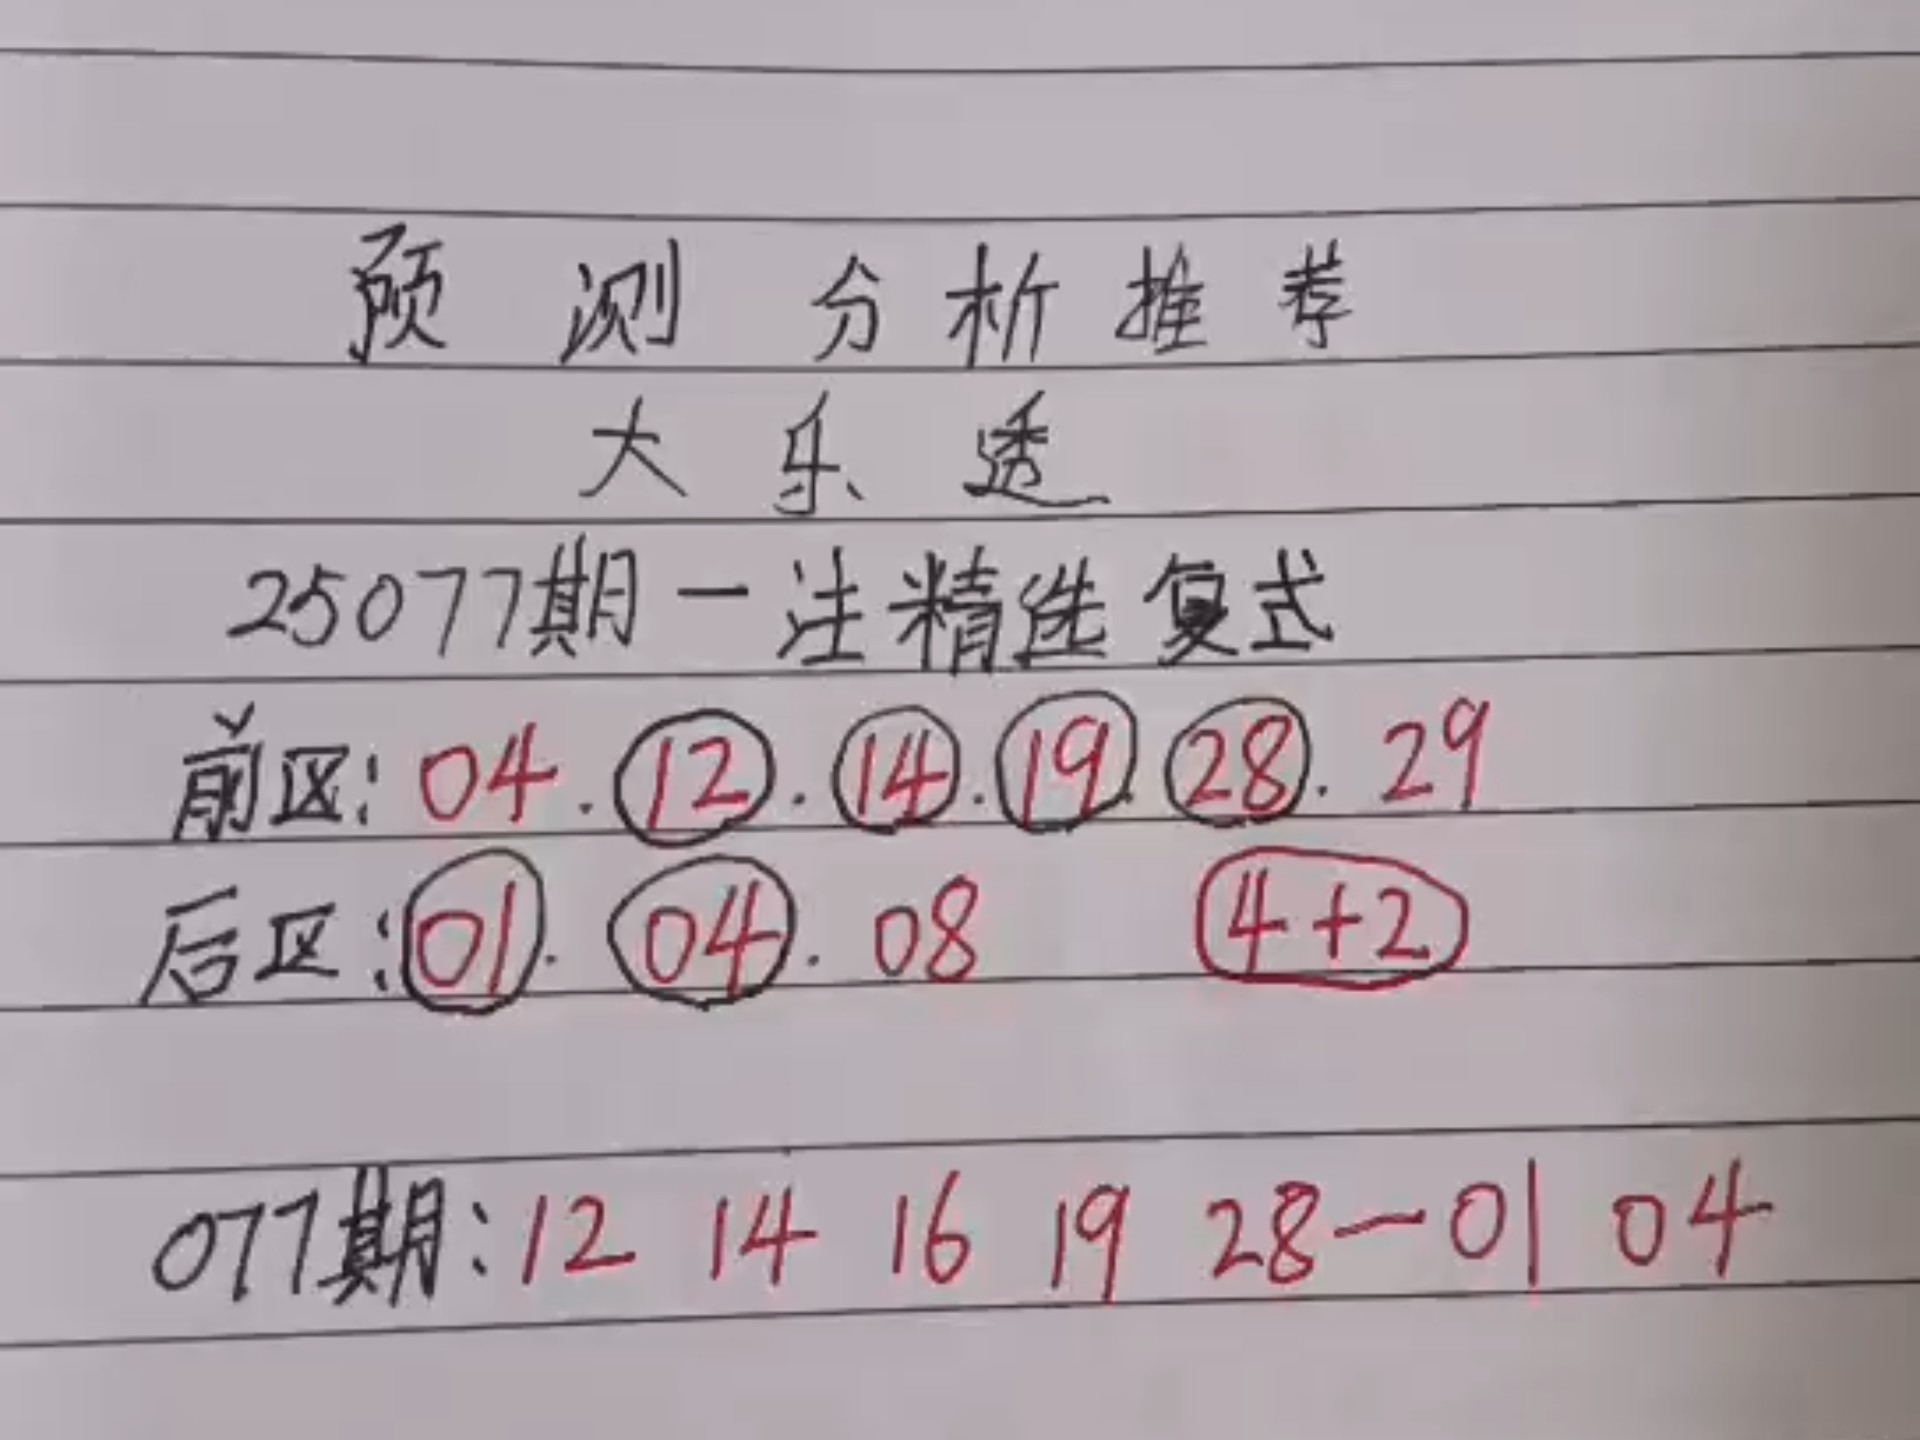 预测分析推荐
大乐透
25077期一注精选复式
前区:04.12.14.19.28.29
后区:01.04.08 4+2
077期:12 14 16 19 28—01 04